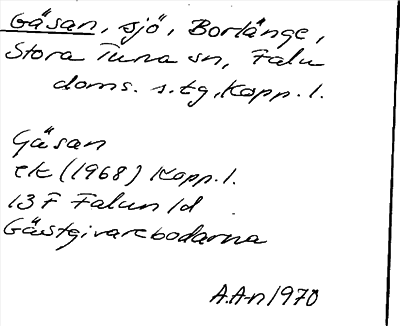 Gåsan, sjö, Borlänge,
Stora Tuna sn, Falu
doms. s. tg, Kopp. l.
Gåsan
ek (1968) Kopp. l.
13 F Falun 1d
Gästgivarebodarna
A.A-n 1970